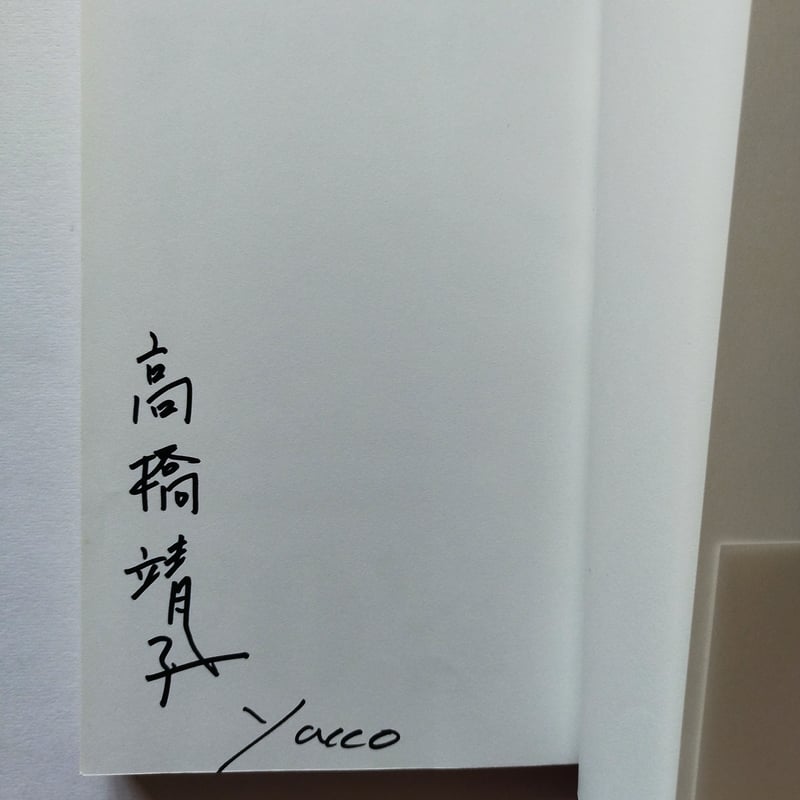 高橋靖子
Yacco